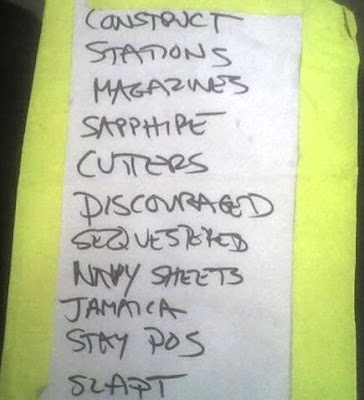 CONSTRUCT
STATIONS
MAGAZINES
SAPPHIRE
CUTTERS
DISCOURAGED
SEQUESTERED
NAVY SHEETS
JAMAICA
STAY POS